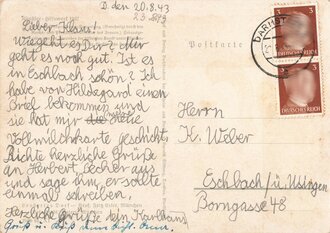 D. den 20.8.43
Lieber Klaus!
Wie geht es Dir? Mir
geht es noch gut. Ist es
in Eschbach schön? Ich
habe von Hildegard einen
Brief bekommen und
sie hat mir die
Vollmilchkarte geschickt.
Richte herzliche Grüße
an Herbert, aus
und sage ihm, er sollte
einmal schreiben.
Herzliche Grüße von Karlhans
Gruß u. Kuß
Postkarte
3 3
DEUTSCHES REICH
3 3
DEUTSCHES REICH
Herrn
K. Weber
Eschbach ü/ Usingen
Borngasse 48